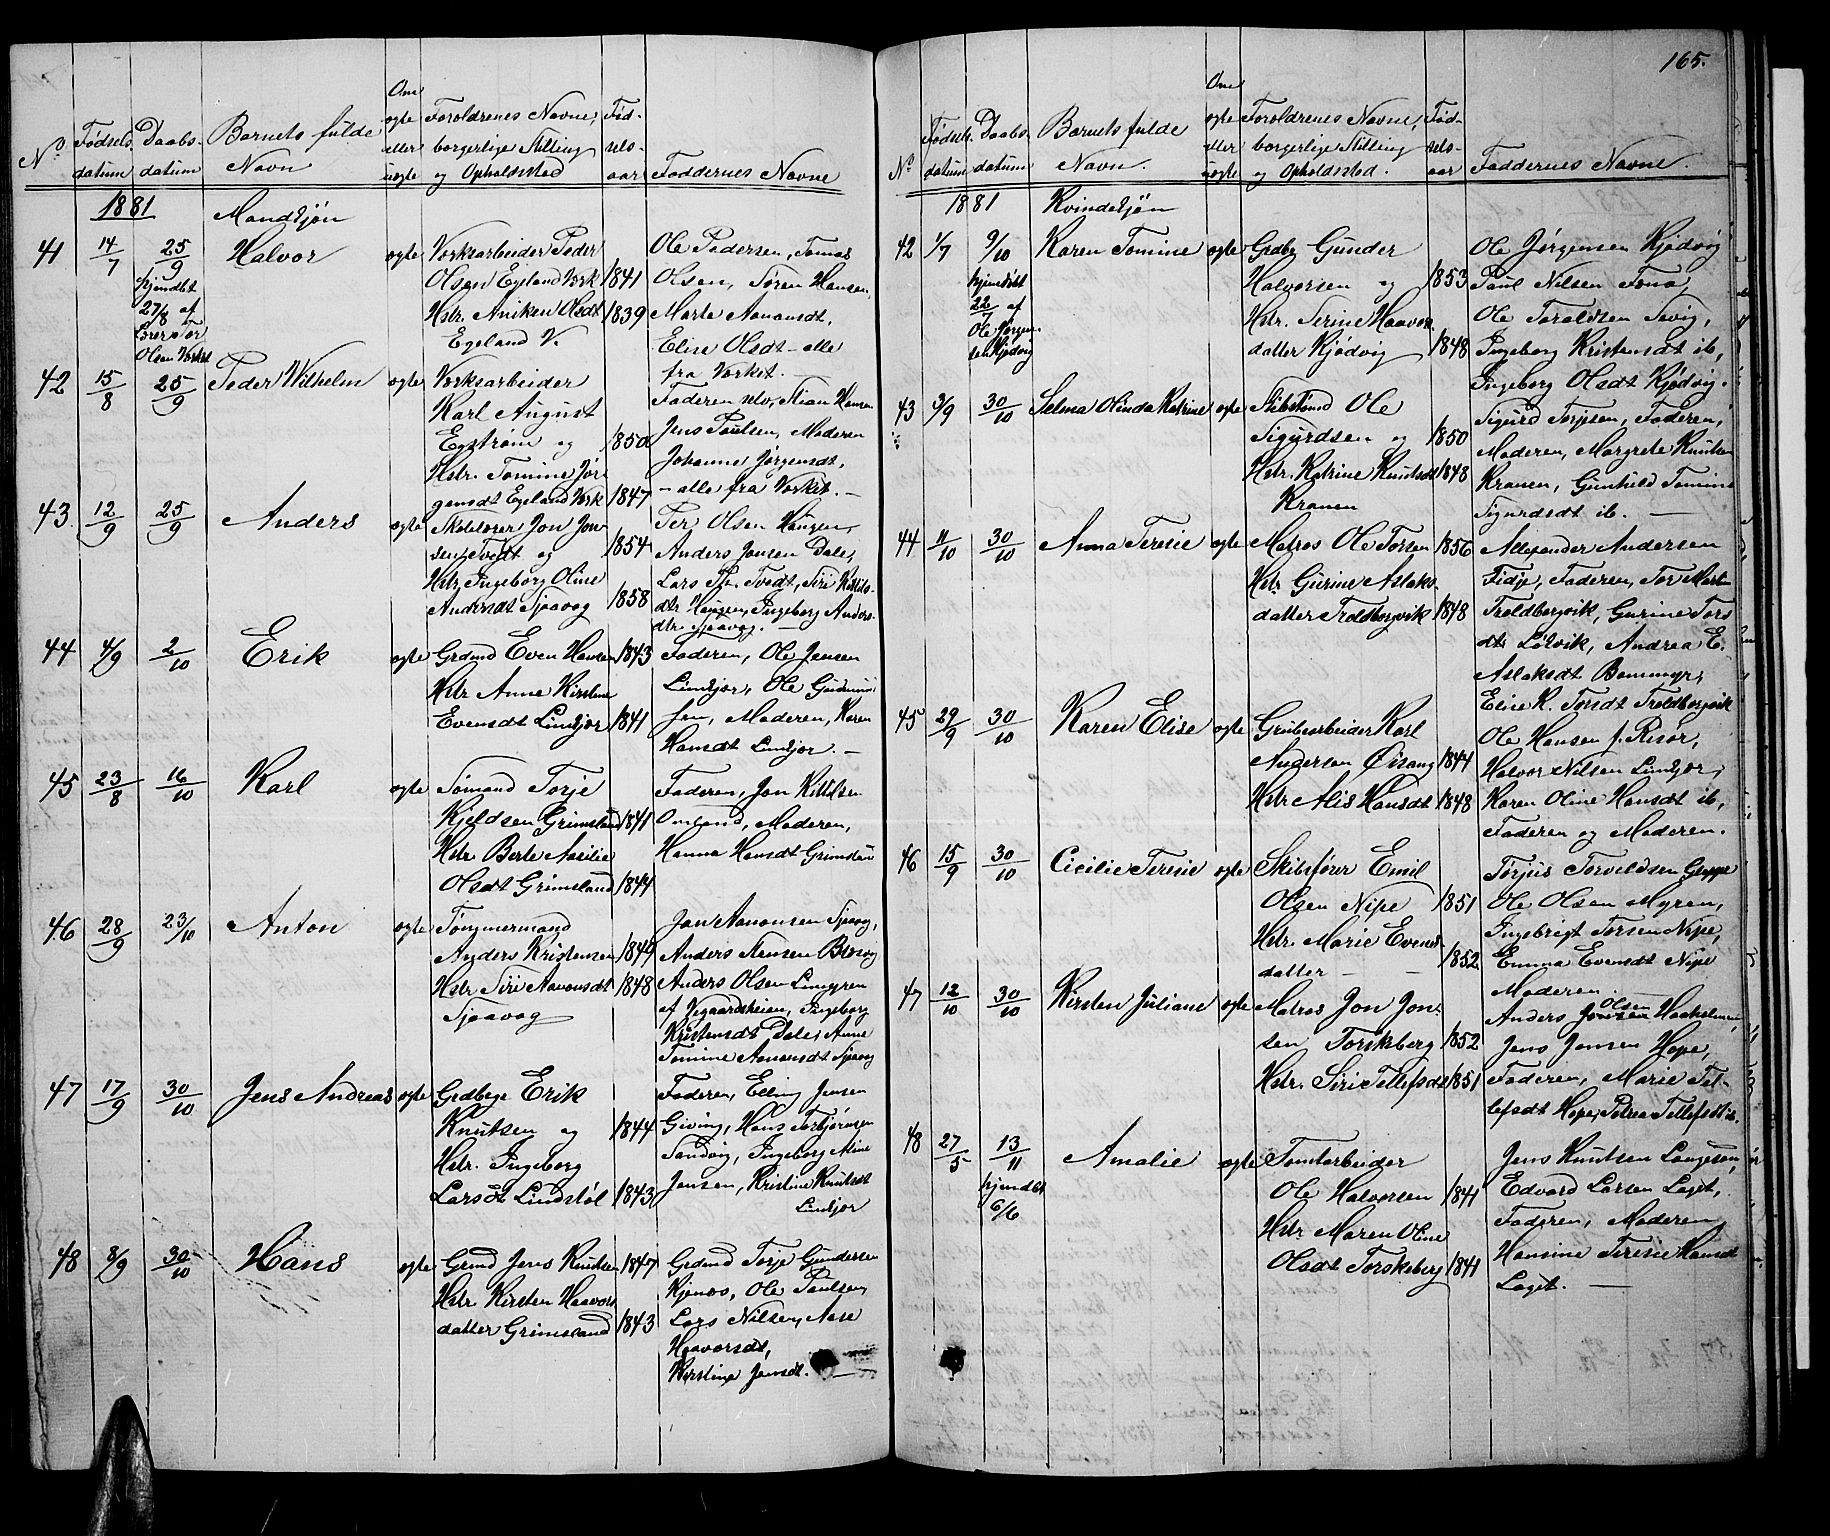 165.
No Fødsels- datum Daabs- datum Barnets fulde Navn Om ægte eller uægte Forældrenes Navne, borgerlige Stilling og Opholdssted Fød- sels- aar Faddernes Navne
1881 Mandkjøn
41 14/7 25/9 Halvor ægte
hjemdøbt
27/8 af
Olsen Værket
Værksarbeider Peder
Olsen Egeland Værk 1841
Hstr. Aniken Olsdt 1839
Egeland V.
Ole Pedersen, Tomas
Olsen, Søren Hansen,
Marte Aanonsdt,
Elise Olsdt - alle
fra Værket. —
42 15/8 25/9 Peder Wilhelm ægte
Værksarbeider
Karl August
Egstrøm og 1850
Hstr. Tomine Jør
gensdt Egeland Værk 1847
Faderen selv, Stian Hansen
Jens Paulsen, Moderen
Johanne Jørgensdt,
- alle fra Værket. —
43 12/9 25/9 Anders ægte
Skolelærer Jon Jon
sen, Tvedt og 1854
Hstr. Ingeborg Oline
Andersdt Sjaavåg 1858
Per Olsen Haugen,
Anders Jensen Dale,
Lars Tvedt, Siri Kittils-
dtr. Haugen, Ingeborg Anders-
dtr. Sjaavåg. —
44 4/9 2/10 Erik ægte
Grdmd Even Hansen 1843
Hstr. Anne Kirstine
Evensdt Lindjør 1841
Faderen, Ole Jensen
Lindjør, Ole Gudmund
sen, Moderen, Karen
Hansdt Lindjør. —
45 23/8 16/10 Karl ægte
Sømand Torje
Kjeldsen Grimsland 1841
Hstr. Berte Aasilie
Olsdt Grimsland 1844
Faderen, Jon Kittilsen
Omland, Moderen,
Hanna Hansdt Grimsland
46 28/9 23/10 Anton ægte
Tømmermand
Anders Kristensen 1849
Hstr. Siri Aanonsdt 1848
Sjaavåg
Jon Aanonsen Sjaavåg,
Anders Stensen
Anders Olsen Lunggren
af Vegaardsheien, Ingeborg
Kristensdt Dale, Anne
Tomine Aanonsdt Sjaavåg
47 17/9 30/10 Jens Andreas ægte
Grdbrge Erik
Knutsen og 1844
Hstr. Ingeborg
Larsdt Lindstøl 1843
Faderen, Elling Jensen
Giving, Hans Torbjørnsen
Sandvig, Ingeborg Aline
Jensen, Kristine Knutsdt
Lindjør
48 8/9 30/10 Hans ægte
Grmd Jens Knutsen 1847
Hstr. Kirsten Haavors
datter Grimsland 1843
Grdmd Torje Gundersen
Kjenås, Ole Paulsen,
Lars Nilsen, Aase
Haavorsdt,
Kirstine Jensdt. —
No Fødsels- datum Daabs- datum Barnets fulde Navn. Om ægte eller uægte Forældrenes Navne, borgerlige Stilling og Opholdssted. Fød- sels- aar Faddernes Navne.
1881 Kvindekjøn
42 1/7 9/10 Karen Tomine ægte
hjemdøbt
22/7 af
Ole Jørgen-
sen Kjødvig
Grdbr Gunder
Halvorsen og 1853
Hstr. Serine Haavor
datter Kjødvig 1848
Ole Jørgensen Kjødvig
Paul Nilsen
Ole Taraldsen
Ingeborg Kristensdt ib,
Ingeborg Olsdt Kjødvig.
43 3/9 30/10 Selma Olinda Katrine ægte
Ole
Sigurdsen og 1850
Hstr. Katrine Knutsdt 1848
Kranen
Sigurd Terjesen, Faderen,
Moderen, Margrete Knutsen
Kranen, Gunhild Tomine
Sigurdsdt ib. —
44 11/10 30/10 Anna Teresie ægte
Matros Ole Torsen 1856
Hstr. Gurine Aslaks-
datter Troldbergvik 1848
Alexander Andersen
Fidje, Faderen, Tor
Troldbergvik, Gurine Tors
dtr. Lølvik, Andrea E.
Aslaksdt Bommyr,
Eline K. Torsdt Troldbergvik
45 29/9 30/10 Karen Elise ægte
Grubearbeider Karl
Andersen Øisang 1844
Hstr Alis Hansdt 1848
Ole Hansen f. Risør,
Halvor Nilsen Lindjør,
Karen Oline Hansdt ib,
Faderen og Moderen.
46 15/9 30/10 Cicilie Teresie ægte
Skibsfører Emil
Olsen Nipe 1851
Hstr. Marie Evens
datter — — 1852
Torjus Torvildsen
Ole Olsen Myren,
Ingebrigt Torsen Nipe,
Emma Evensdt Nipe
Moderen. —
47 12/10 30/10 Kirsten Juliane ægte
Matros Jon Jon-
sen Torskberg 1852
Hstr. Siri Tellefsdt 1851
Olsen
Anders Jonsen
Jens Jensen Hope,
Faderen, Marie Tel-
lefsdt Hope, Petrea Tellefsdt ib.
48 27/5 13/11 Amalie ægte
hjemdøbt
6/6
Tomtarbeider
Ole Halvorsen 1841
Hstr Maren Oline
Olsdt Torskeberg 1841
Jens Knutsen
Edvard Larsen Laget,
Faderen, Moderen
Hansine Teresie Hansdt
Laget. —